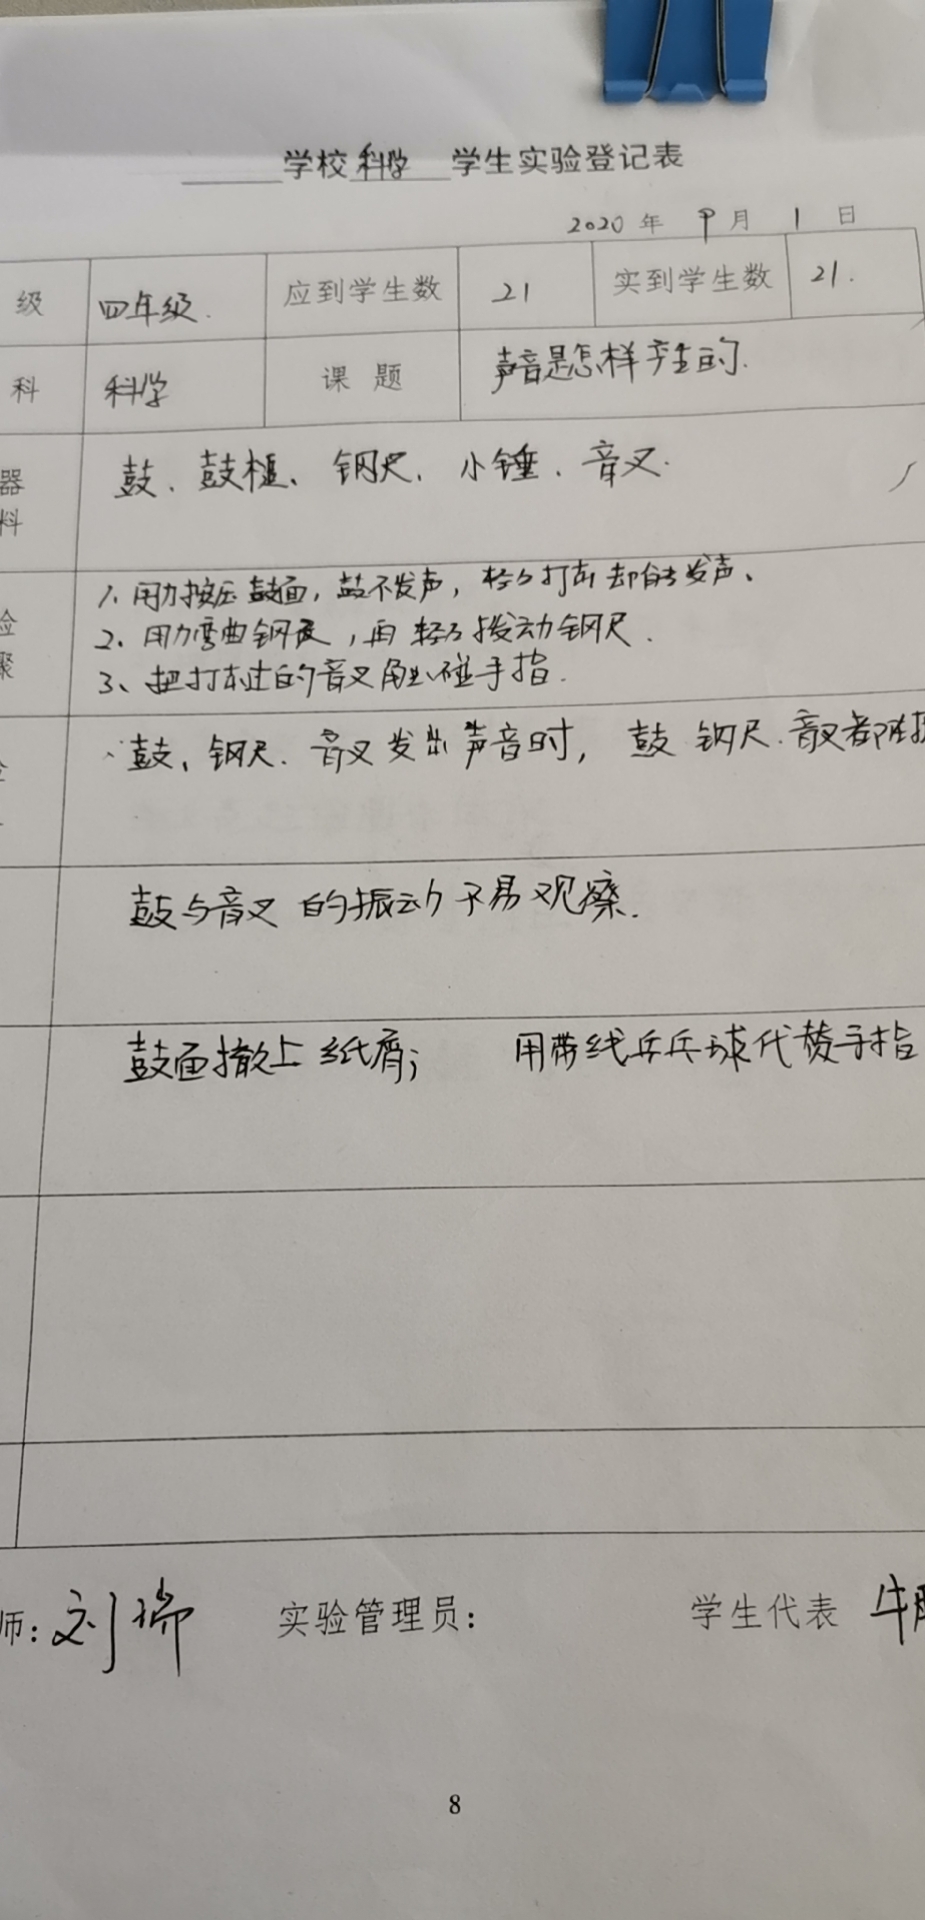 学校科学 学生实验登记表
2020年 9月 1日
级 四年级. 应到学生数 21 实到学生数 21.
科 科学 课题 声音是怎样产生的.
器料 鼓、鼓槌、钢尺、小锤、音叉.
1、用力按压鼓面，鼓不发声，轻轻打击却能发声、
2、用力弯曲钢尺，再轻轻拨动钢尺.
3、把打击过的音叉触碰手指.
鼓、钢尺、音叉发出声音时，鼓 钢尺、音叉都在振
鼓与音叉的振动不易观察.
鼓面撒上纸屑； 用带线乒乓球代替手指
师：刘瑞 实验管理员： 学生代表 牛
8